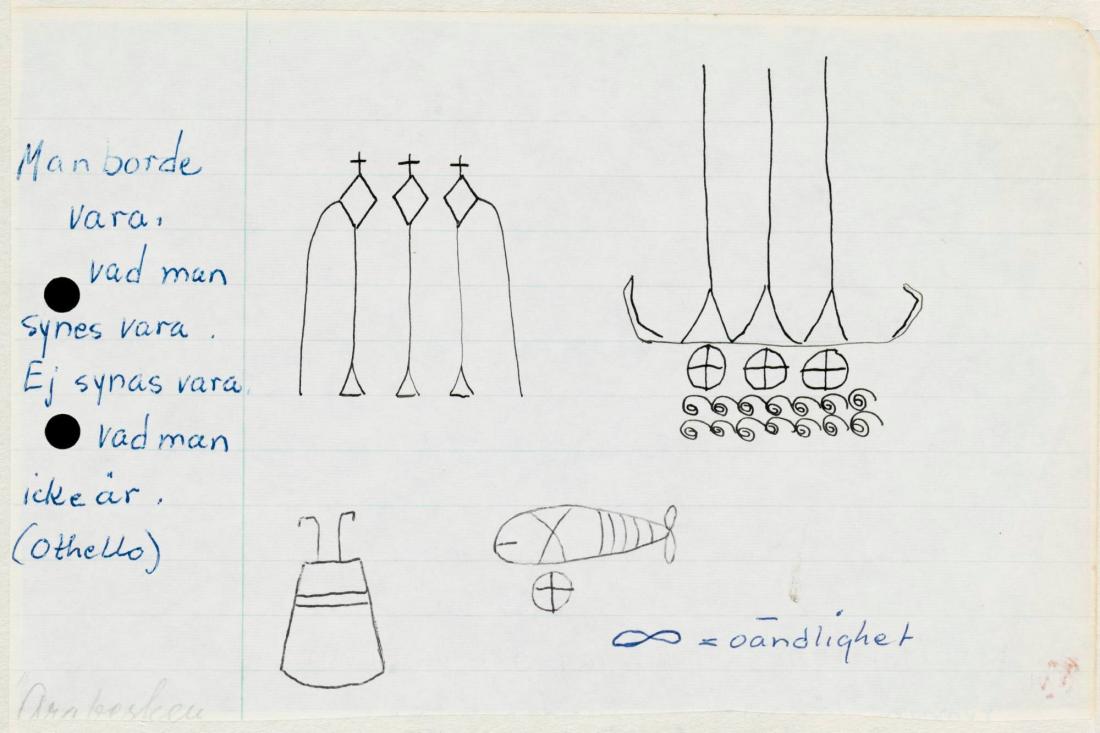 Man borde
vara,
vad man
synes vara.
Ej synas vara
vad man
icke är.
(Othello)
∞ = oändlighet